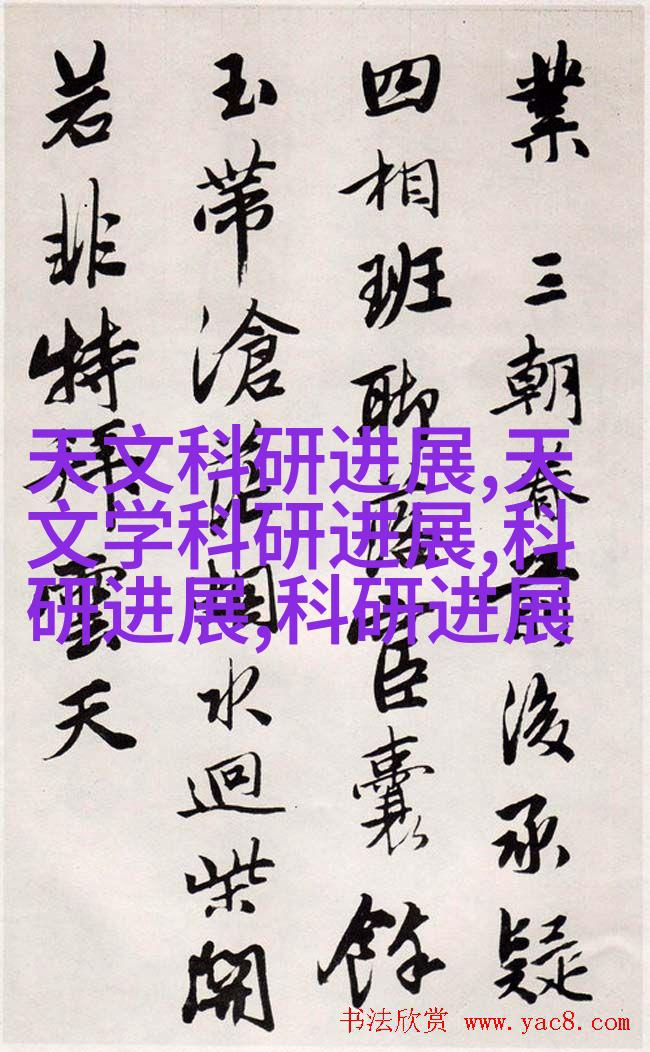 業 三朝前後承疑
四相班聊臣囊餘
玉帶滄茫水迴柴開
若非特拜雲天
天文科研进展,天
文学科研进展,科
研进展,科研进展
书法欣赏 www.yac8.com